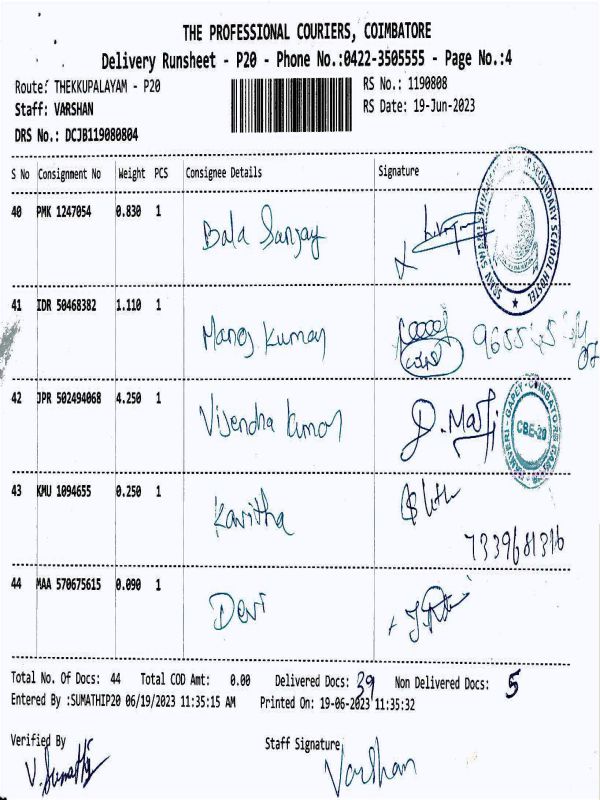 THE PROFESSIONAL COURIERS, COIMBATORE
Delivery Runsheet - P20 - Phone No.:0422-3505555 - Page No.:4
Route: THEKKUPALAYAM - P20
RS No.: 1190808
Staff: VARSHAN
RS Date: 19-Jun-2023
DRS No.: DCJB119080804
S No Consignment No Weight PCS Consignee Details Signature
40 PMK 1247054 0.830 1 Bala Sanjay
41 IDR 50468382 1.110 1 Manoj Kumar
42 JPR 502494068 4.250 1 Vijendra Kumar D.
CBE-20
43 KMU 1094655 0.250 1 Kavitha
7339681316
44 MAA 570675615 0.090 1 Devi
Total No. Of Docs: 44 Total COD Amt: 0.00 Delivered Docs: 39 Non Delivered Docs: 5
Entered By :SUMATHIP20 06/19/2023 11:35:15 AM Printed On: 19-06-2023 11:35:32
Verified By Staff Signature
V. Sumathi Varshan